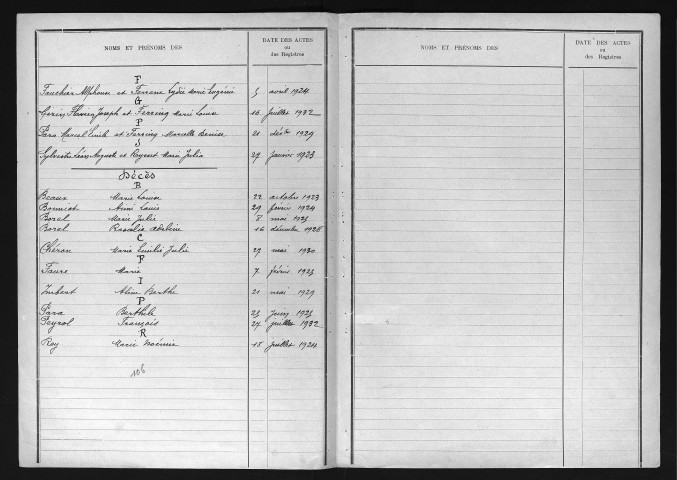 NOMS ET PRÉNOMS DES
DATE DES ACTES
ou
des Registres
F
Fouchier Alphonse et Ferrana Lydie Marie Eugénie 5 avril 1924
G
Joseph et Marie Louise 16 juillet 1932
P
Para Marcel Emile et Marcelle Denise 21 déc 1929
S
Sylvestre Léon Auguste et Marie Julia 29 janvier 1923
Décès
B
Beaux Marie Louise 22 octobre 1923
Bonniot Aimé Louis 29 février 1924
Borel Marie Julie 8 mai 1925
Borel Rosalie Adeline 16 décembre 1926
C
Chéron Marie Emilie Julie 29 mai 1930
F
Faure Marie 7 février 1923
I
Imbert Aline Berthe 21 mai 1929
P
Para Berthile 25 juin 1925
Peyrol François 24 juillet 1932
R
Rey Marie Noémie 15 juillet 1924
106
NOMS ET PRÉNOMS DES
DATE DES ACTES
ou
des Registres